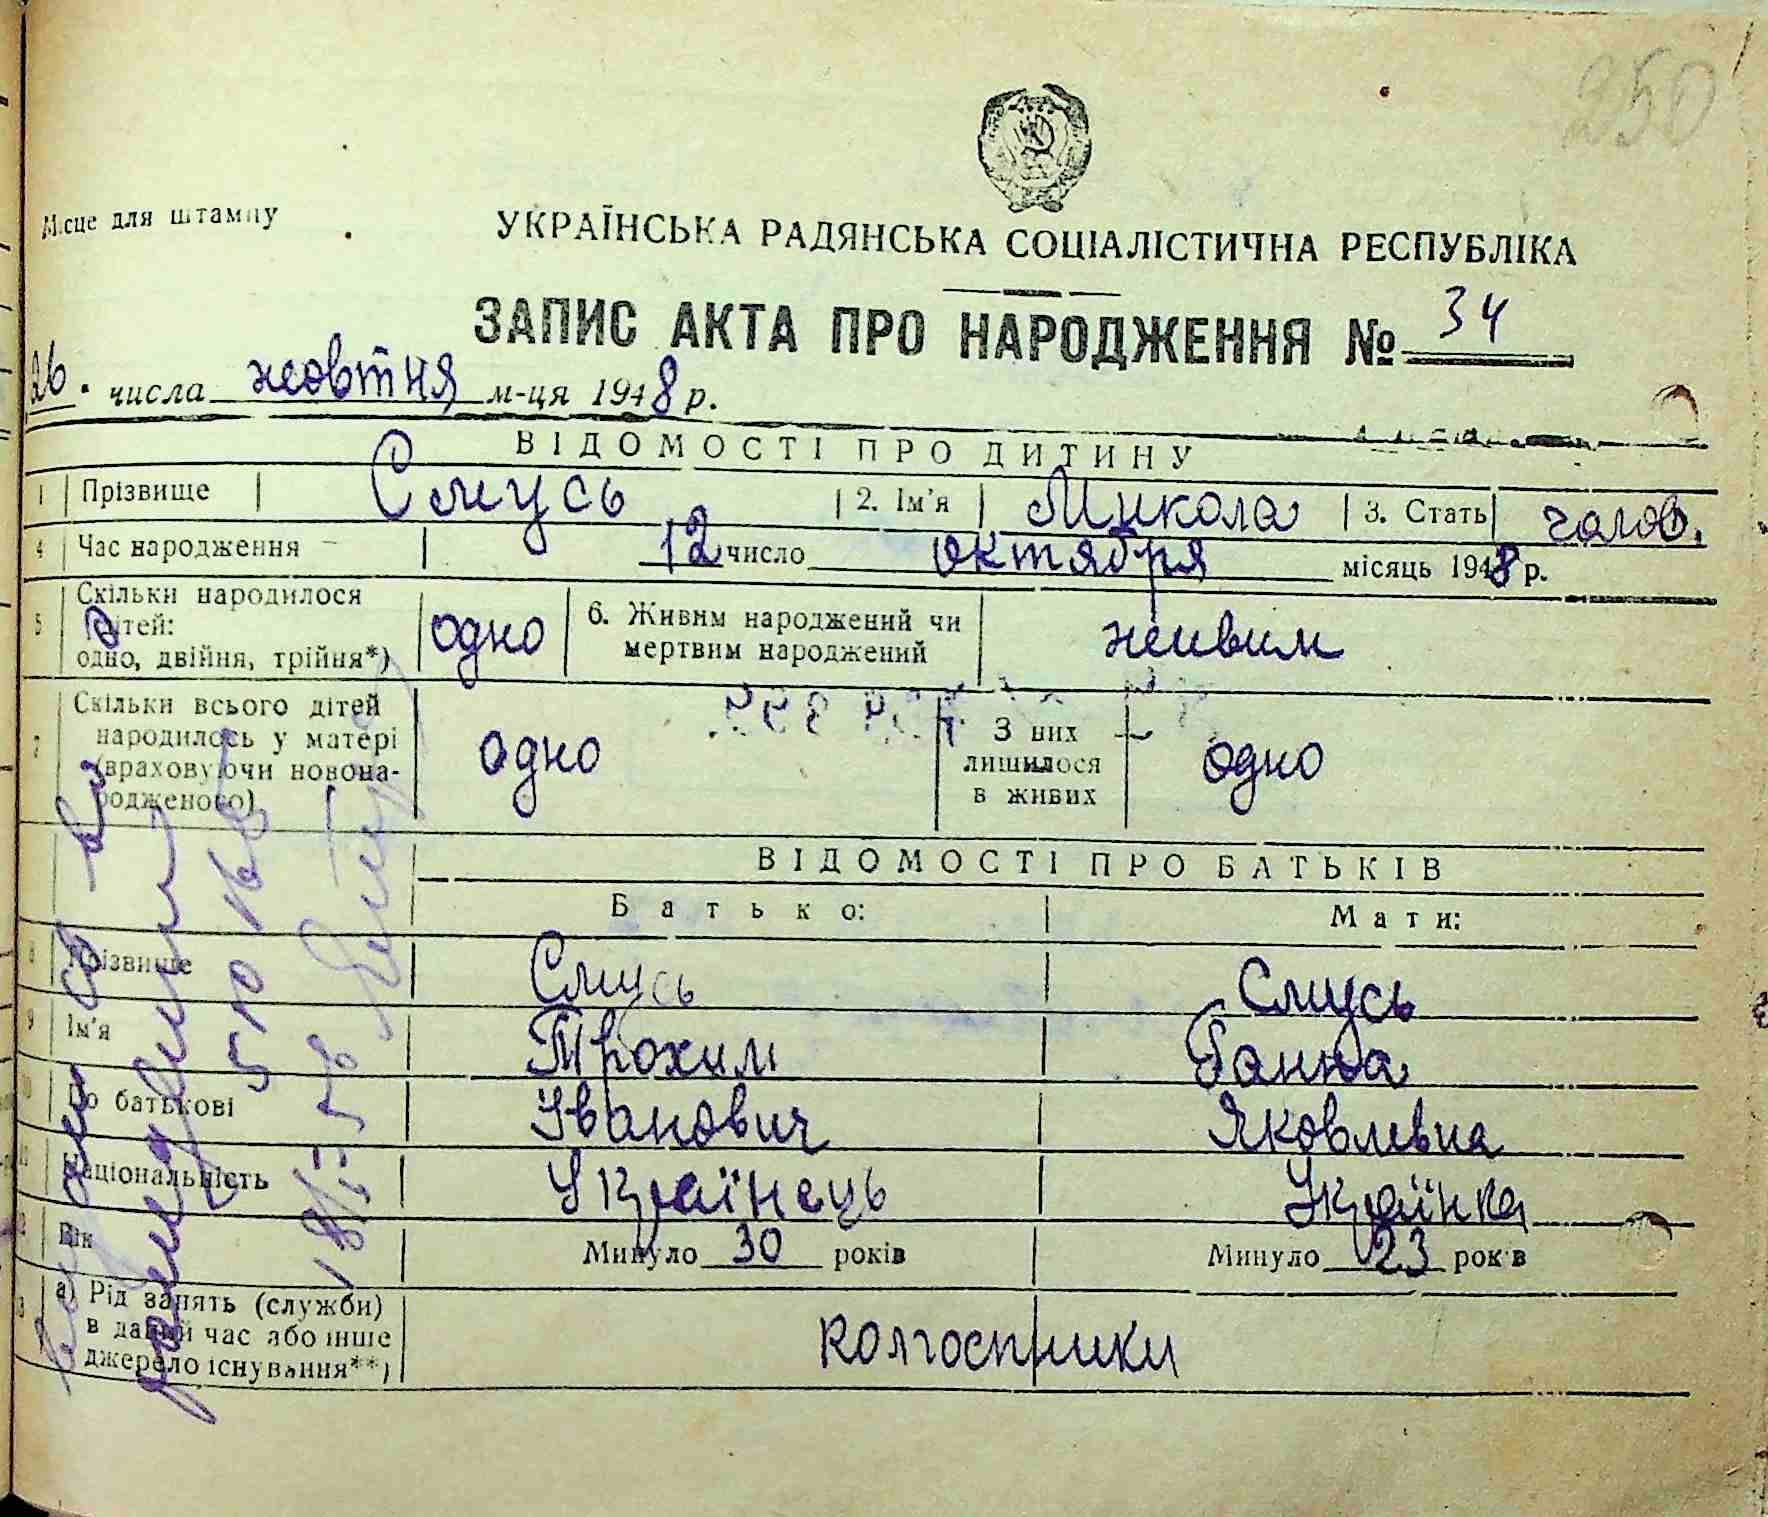 250
Місце для штампу
УКРАЇНСЬКА РАДЯНСЬКА СОЦІАЛІСТИЧНА РЕСПУБЛІКА
ЗАПИС АКТА ПРО НАРОДЖЕННЯ № 34
26. числа жовтня м-ця 1948 р.
ВІДОМОСТІ ПРО ДИТИНУ
1 Прізвище Смусь 2. Ім'я Микола 3. Стать чолов.
4 Час народження 12 число октября місяць 1948 р.
5 Скільки народилося дітей: одно, двійня, трійня*) одно 6. Живим народжений чи мертвим народжений живим
7 Скільки всього дітей народилось у матері (враховуючи новонародженого) одно З них лишилося в живих одно
ВІДОМОСТІ ПРО БАТЬКІВ
Батько: Мати:
8 Прізвище Смусь Смусь
9 Ім'я Трохим Ганна
10 По батькові Іванович Яковлевна
11 Національність Українець Українка
12 Вік Минуло 30 років Минуло 23 років
13 а) Рід занять (служби) в даний час або інше джерело існування**) колгоспники